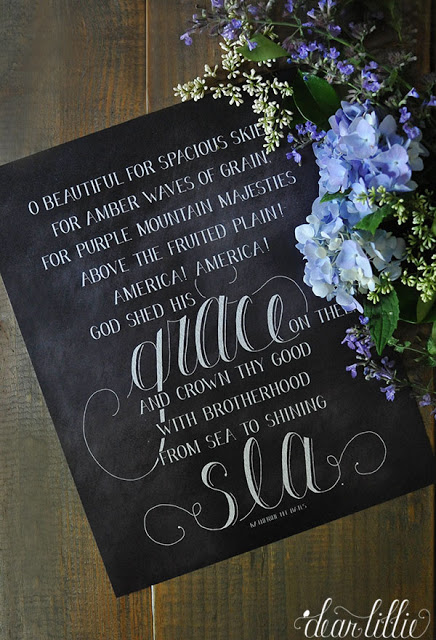 O BEAUTIFUL FOR SPACIOUS SKIE
FOR AMBER WAVES OF GRAIN.
FOR PURPLE MOUNTAIN MAJESTIES
ABOVE THE FRUITED PLAIN!
AMERICA! AMERICA!
GOD SHED HIS
grace ON THE
AND CROWN THY GOOD
WITH BROTHERHOOD
FROM SEA TO SHINING
sea.
KATHERINE LEE BATES
dear lillie